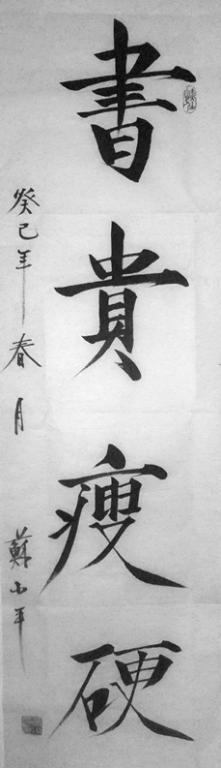 書貴瘦硬
癸巳年春月
蘇小平